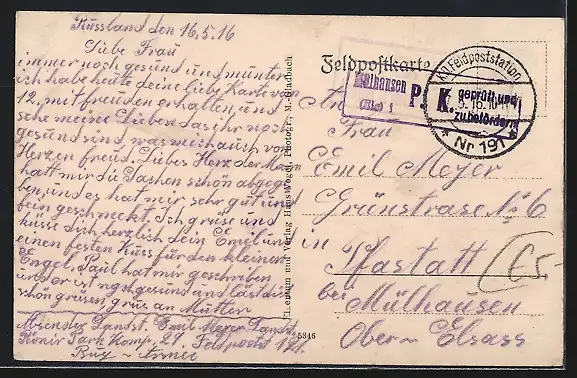 Russland den 16.5.16
Liebe Frau
immer noch gesund und munter
ich habe heute deine liebe Karte vom
12. mit freuden erhalten, und
sehe meine Lieben das ihr noch
gesund sind, was mich auch von
Herzen freud. Liebes Herz der Meyer
hatt mir die Sachen schön abgege
ben, und es hat mir sehr gut und
fein geschmeckt. Ich grüse und
küsse dich herzlich dein Emil und
einen festen Kuss für den kleinen
Engel. Paul hat mir geschrieben
und er ist noch gesund und läst dich
schön grüsen, grüs an Mutter
Absender Landst. Emil Meyer Landst.
Pionir Park Komp. 29. Feldpostst 191.
Bug-Armee
Eigentum und Verlag Hans Vogel, Photogr., M.-Gladbach
5346
Feldpostkarte
Mülhausen
(Els) 1
P. K.
geprüft und
zu befördern
K.D. Feldpoststation
5.16.10-11
* Nr 191 *
An
Frau
Emil Meyer
Grünstrase No 6
in
Pfastatt
bei
Mülhausen
Ober-Elsass